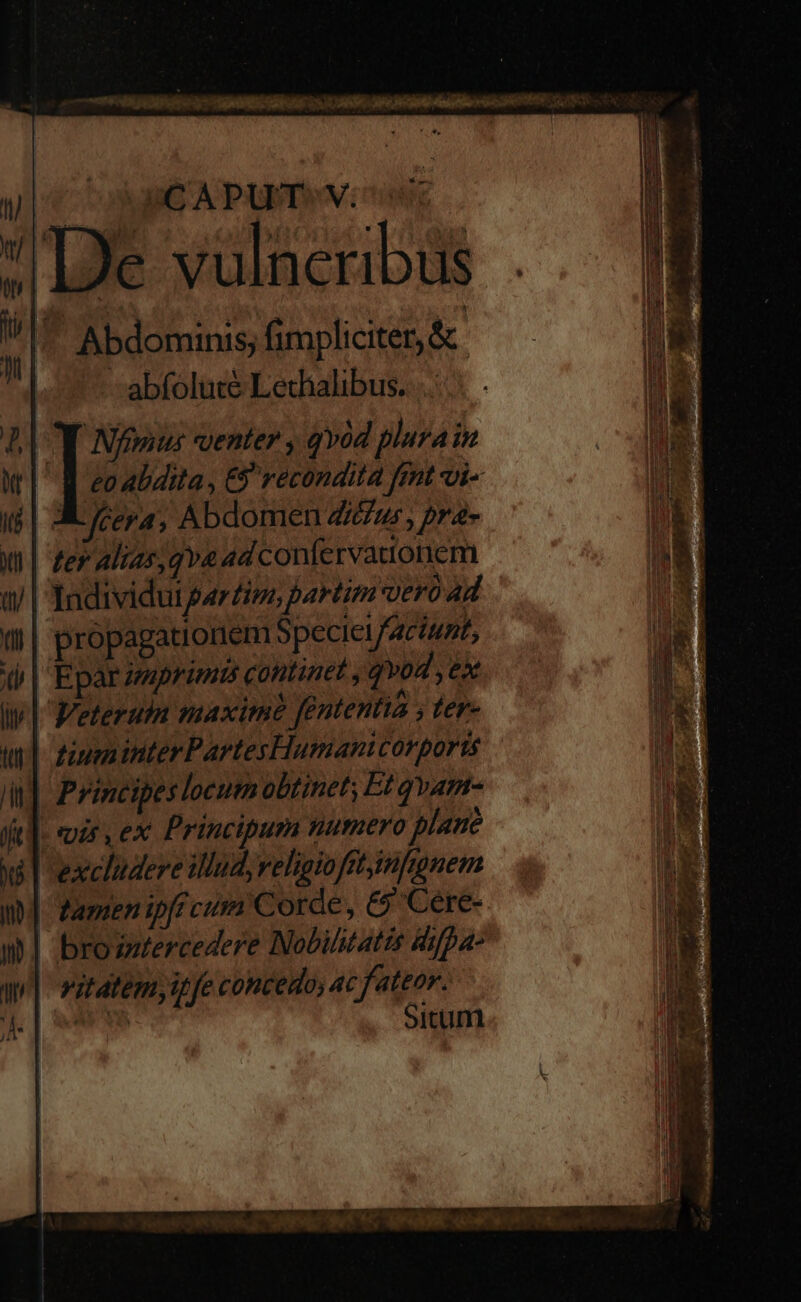 CAPUT V.
De vulneribus
Abdominis, ſimpliciter, &
abſolutè Lethalibus.
INfimus venter, qvòd plura in
eo abdita, & recondita ſint vi-
ſcera, Abdomen dictus, præ-
ter alias, qvæ ad conſervationem
Individui partim, partim verò ad
propagationem Speciei faciunt,
Epar imprimis continet, qvod, ex
Veterum maximè ſententiâ, ter-
tium inter Partes Humani corporis
Principes locum obtinet; Et qvam-
vis, ex Principum numero planè
excludere illud, religio ſit, inſignem
tamen ipſi cum Corde, & Cere-
bro intercedere Nobilitatis diſpa-
ritatem, ipſe concedo, ac fateor.
Situm